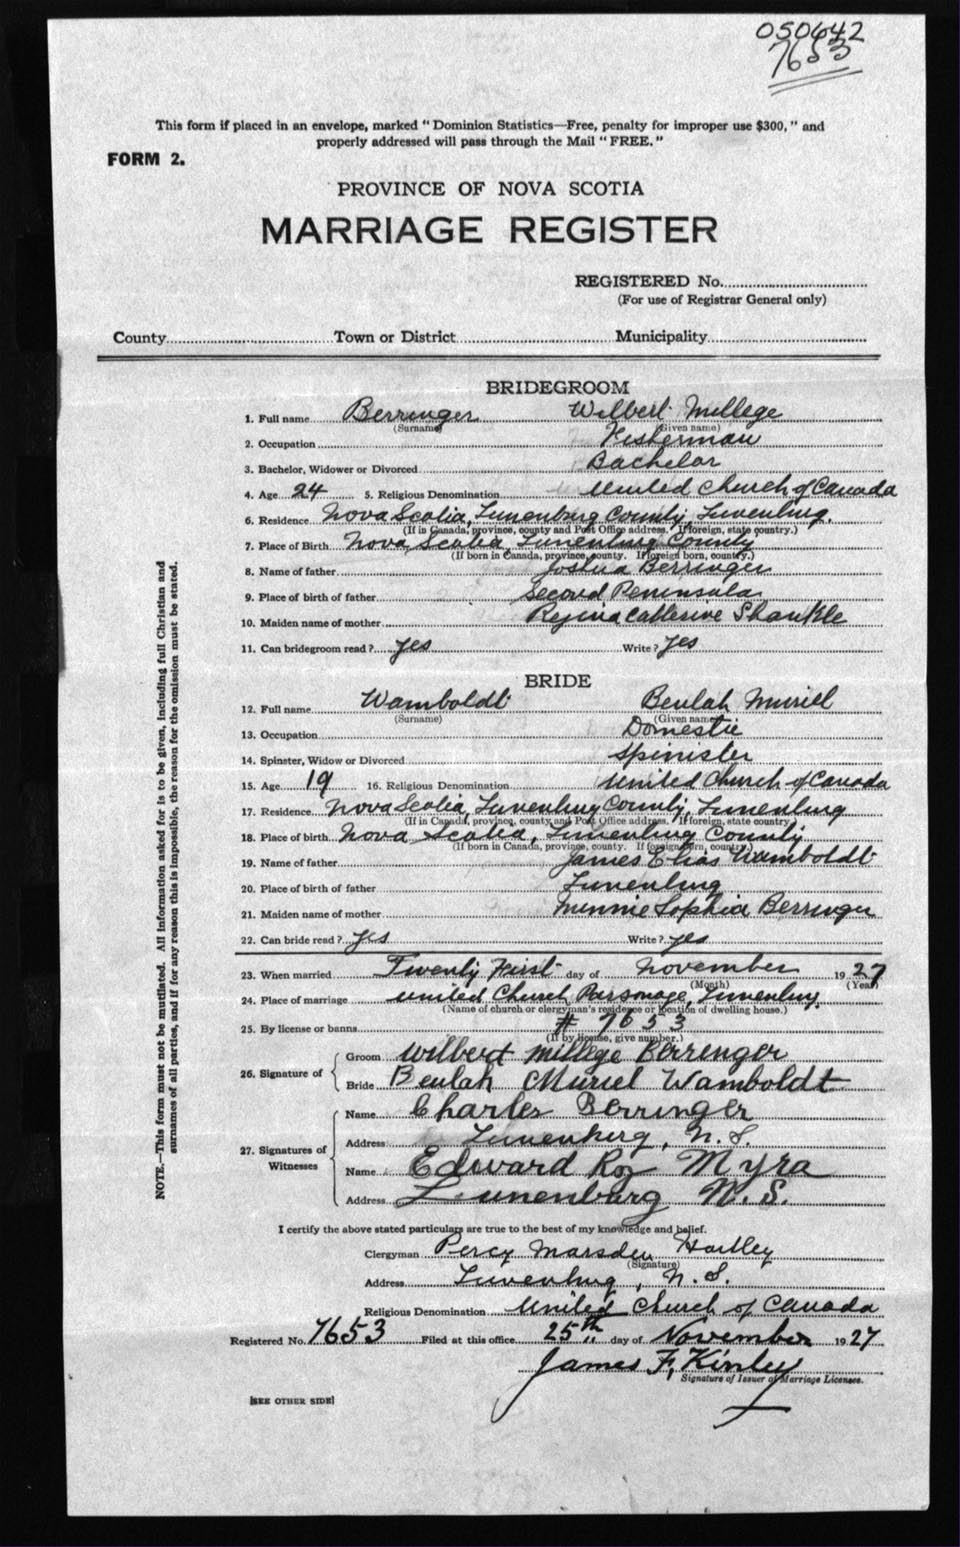 050642
7653
This form if placed in an envelope, marked " Dominion Statistics—Free, penalty for improper use $300, " and
properly addressed will pass through the Mail " FREE. "
FORM 2.
PROVINCE OF NOVA SCOTIA
MARRIAGE REGISTER
REGISTERED No.
(For use of Registrar General only)
County Town or District Municipality
BRIDEGROOM
1. Full name Berringer Wilbert Millege
(Surname) (Given name)
2. Occupation Fisherman
3. Bachelor, Widower or Divorced Bachelor
4. Age 24 5. Religious Denomination United Church of Canada
6. Residence Nova Scotia, Lunenburg County, Lunenburg.
(If in Canada, province, county and Post Office address. If foreign, state country.)
7. Place of Birth Nova Scotia, Lunenburg County
(If born in Canada, province, county. If foreign born, country.)
8. Name of father Joshua Berringer
9. Place of birth of father Second Peninsula
10. Maiden name of mother Regina Catherine Shankle
11. Can bridegroom read ? yes Write ? yes
BRIDE
12. Full name Wamboldt Beulah Muriel
(Surname) (Given name)
13. Occupation Domestic
14. Spinster, Widow or Divorced Spinister
15. Age 19 16. Religious Denomination United Church of Canada
17. Residence Nova Scotia, Lunenburg County, Lunenburg
(If in Canada, province, county, and Post Office address. If foreign, state country)
18. Place of birth Nova Scotia, Lunenburg County
(If born in Canada, province, county. If foreign born, country.)
19. Name of father James Elias Wamboldt
20. Place of birth of father Lunenburg
21. Maiden name of mother Minnie Sophia Berringer
22. Can bride read ? yes Write ? yes
23. When married Twenty First day of November 1927
(Month) (Year)
24. Place of marriage United Church Parsonage, Lunenburg.
(Name of church or clergyman's residence or location of dwelling house.)
25. By license or banns # 7653
(If by license, give number.)
26. Signature of
Groom Wilbert Millege Berrenger
Bride Beulah Muriel Wamboldt
27. Signatures of Witnesses
Name Charles Berringer
Address Lunenburg, N. S.
Name Edward Roy Myra
Address Lunenburg N. S.
I certify the above stated particulars are true to the best of my knowledge and belief.
Clergyman Percy Marsden Hartley
(Signature)
Address Lunenburg, N. S.
Religious Denomination United Church of Canada
Registered No. 7653 Filed at this office 25th day of November 1927
James F. Kinley
Signature of Issuer of Marriage Licenses.
[SEE OTHER SIDE]
NOTE.—This form must not be mutilated. All information asked for is to be given, including full Christian and
surnames of all parties, and if for any reason this is impossible, the reason for the omission must be stated.